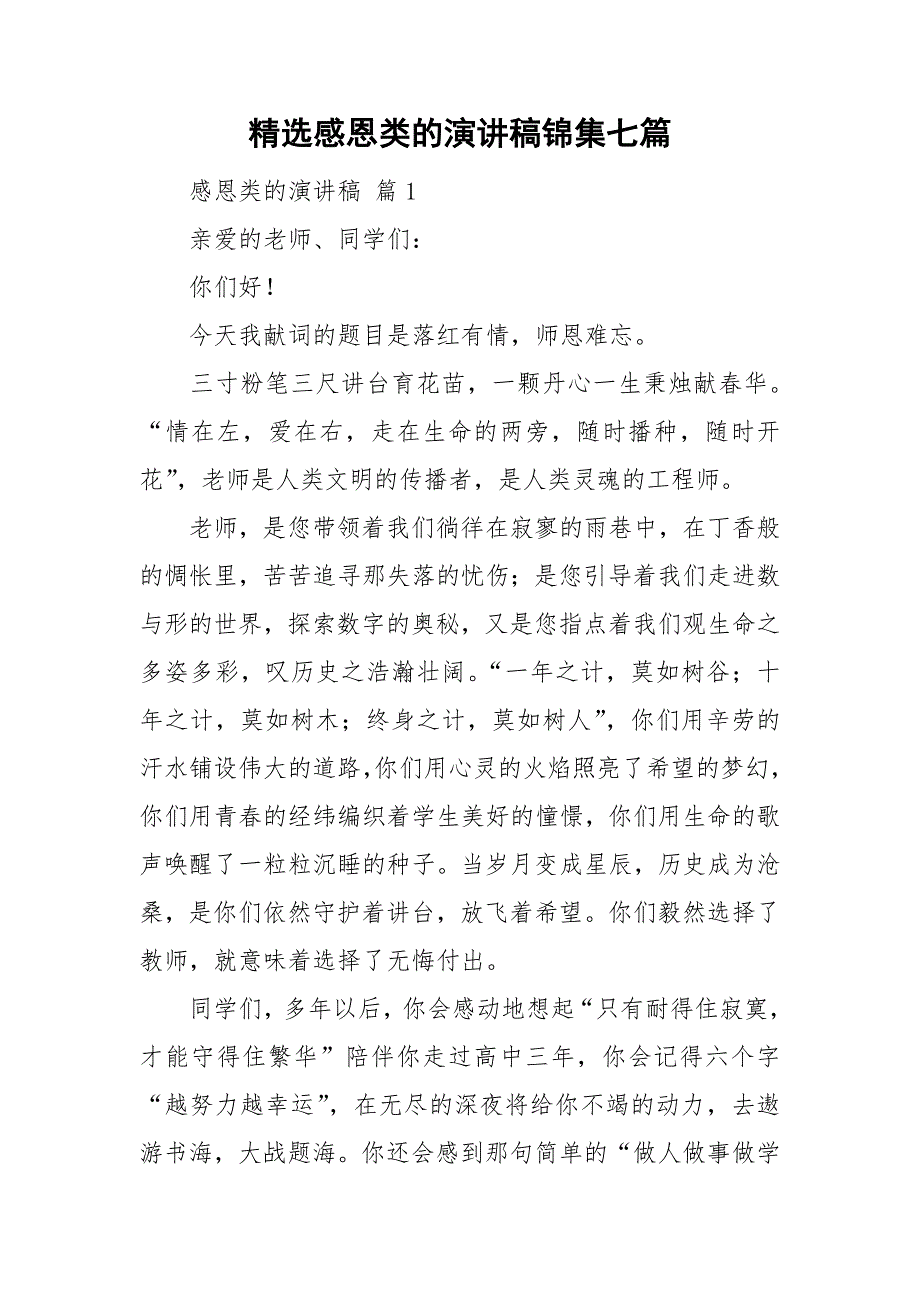 精选感恩类的演讲稿锦集七篇
感恩类的演讲稿 篇 1
亲爱的老师、同学们：
你们好！
今天我献词的题目是落红有情，师恩难忘。
三寸粉笔三尺讲台育花苗，一颗丹心一生秉烛献春华。
“情在左，爱在右，走在生命的两旁，随时播种，随时开
花”，老师是人类文明的传播者，是人类灵魂的工程师。
老师，是您带领着我们徜徉在寂寥的雨巷中，在丁香般
的惆怅里，苦苦追寻那失落的忧伤；是您引导着我们走进数
与形的世界，探索数字的奥秘，又是您指点着我们观生命之
多姿多彩，叹历史之浩瀚壮阔。“一年之计，莫如树谷；十
年之计，莫如树木；终身之计，莫如树人”，你们用辛劳的
汗水铺设伟大的道路，你们用心灵的火焰照亮了希望的梦幻，
你们用青春的经纬编织着学生美好的憧憬，你们用生命的歌
声唤醒了一粒粒沉睡的种子。当岁月变成星辰，历史成为沧
桑，是你们依然守护着讲台，放飞着希望。你们毅然选择了
教师，就意味着选择了无悔付出。
同学们，多年以后，你会感动地想起“只有耐得住寂寞，
才能守得住繁华”陪伴你走过高中三年，你会记得六个字
“越努力越幸运”，在无尽的深夜将给你不竭的动力，去遨
游书海，大战题海。你还会感到那句简单的“做人做事做学